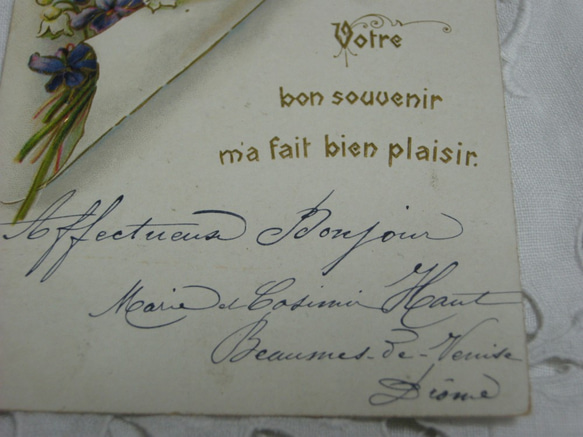 Votre
bon souvenir
m'a fait bien plaisir.
Affectueux Bonjour
Marie et Casimir Haut
Beaumes-de-Venise
Drôme